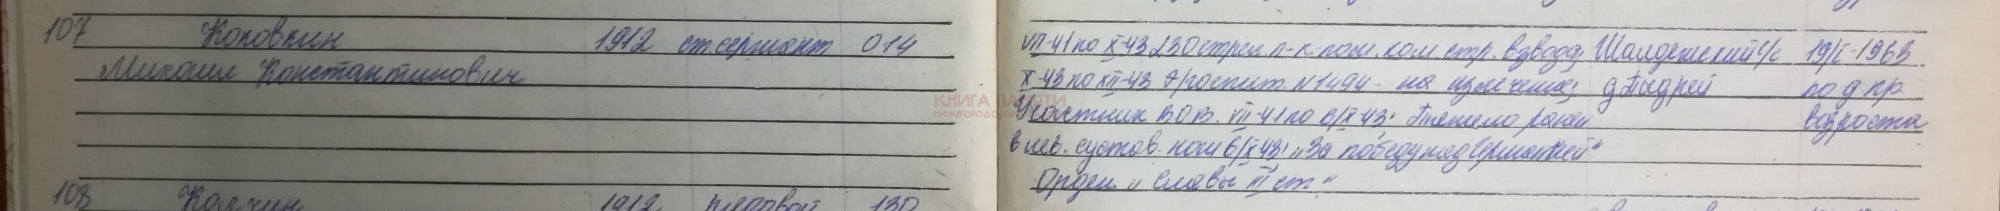 107 Коповкин 1912 ст сержант 014
Михаил Константинович
VII-41 по X-43 230 стрел. п-к пом. ком. стр. взвода
X-43 по XII-43 Э/госпит. N 1494 - на излечении
Участник ВОВ. VII-41 по 6/X-43. тяжело ранен
в лев. сустав. ноги 6/X-43, "За победу над Германией"
Орден. "Славы III ст"
с/с 19/I-1963
д. по д пр.
возраста
КНИГА ПАМЯТИ
108 1912 рядовой 130